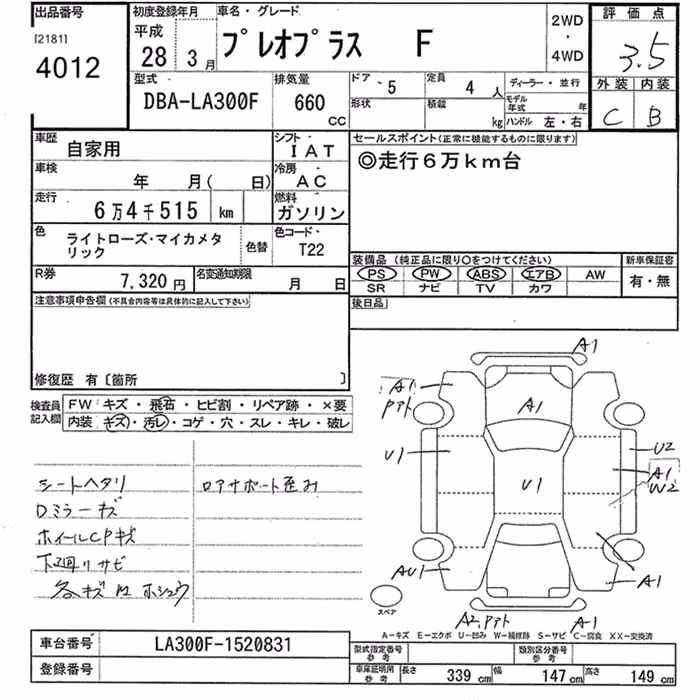 出品番号
[2181]
4012
初度登録年月
平成
28年 3月
車名・グレード
プレオプラス F
2WD
・
4WD
評価点
3.5
外装 内装
C B
型式
DBA-LA300F
排気量
660
CC
ドア・ 5
定員 4 人
形状
積載 kg
ディーラー・並行
モデル年式 年
ハンドル 左・右
車歴
自家用
シフト・
IAT
車検
年 月( 日)
冷房・
AC
走行
6万4千515 km
燃料
ガソリン
色
ライトローズ・マイカメタリック
色替
色コード・
T22
R券
7,320円
名変通知期限
月 日
セールスポイント(正常に機能するものに限ります)
◎走行6万km台
装備品 (純正品に限り〇をつけてください)
新車保証書
PS PW ABS エアB AW
SR ナビ TV カワ
有・無
後日品
注意事項申告欄(不具合内容等は具体的に記入して下さい)
修復歴 有〔箇所 〕
検査員記入欄
FW キズ・飛石・ヒビ割・リペア跡・×要
内装 キズ・汚レ・コゲ・穴・スレ・キレ・破レ
シートヘタリ
ロアサポート歪み
Dミラーキズ
ホイールCPキズ
下廻リサビ
各キズ
A1
A1
A1
U1
U2
A1
W2
U1
AU1
A1
A2
A1
スペア
A-キズ E-エクボ U-凹み W-補修跡 S-サビ C-腐食 XX-交換済
車台番号
LA300F-1520831
登録番号
型式指定番号
参考
類別区分番号
参考
車庫証明用
参考
長さ 339 cm 幅 147 cm 高さ 149 cm